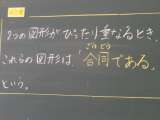 2つの図形がぴったり重なるとき、
これらの図形は「合同である」
という。